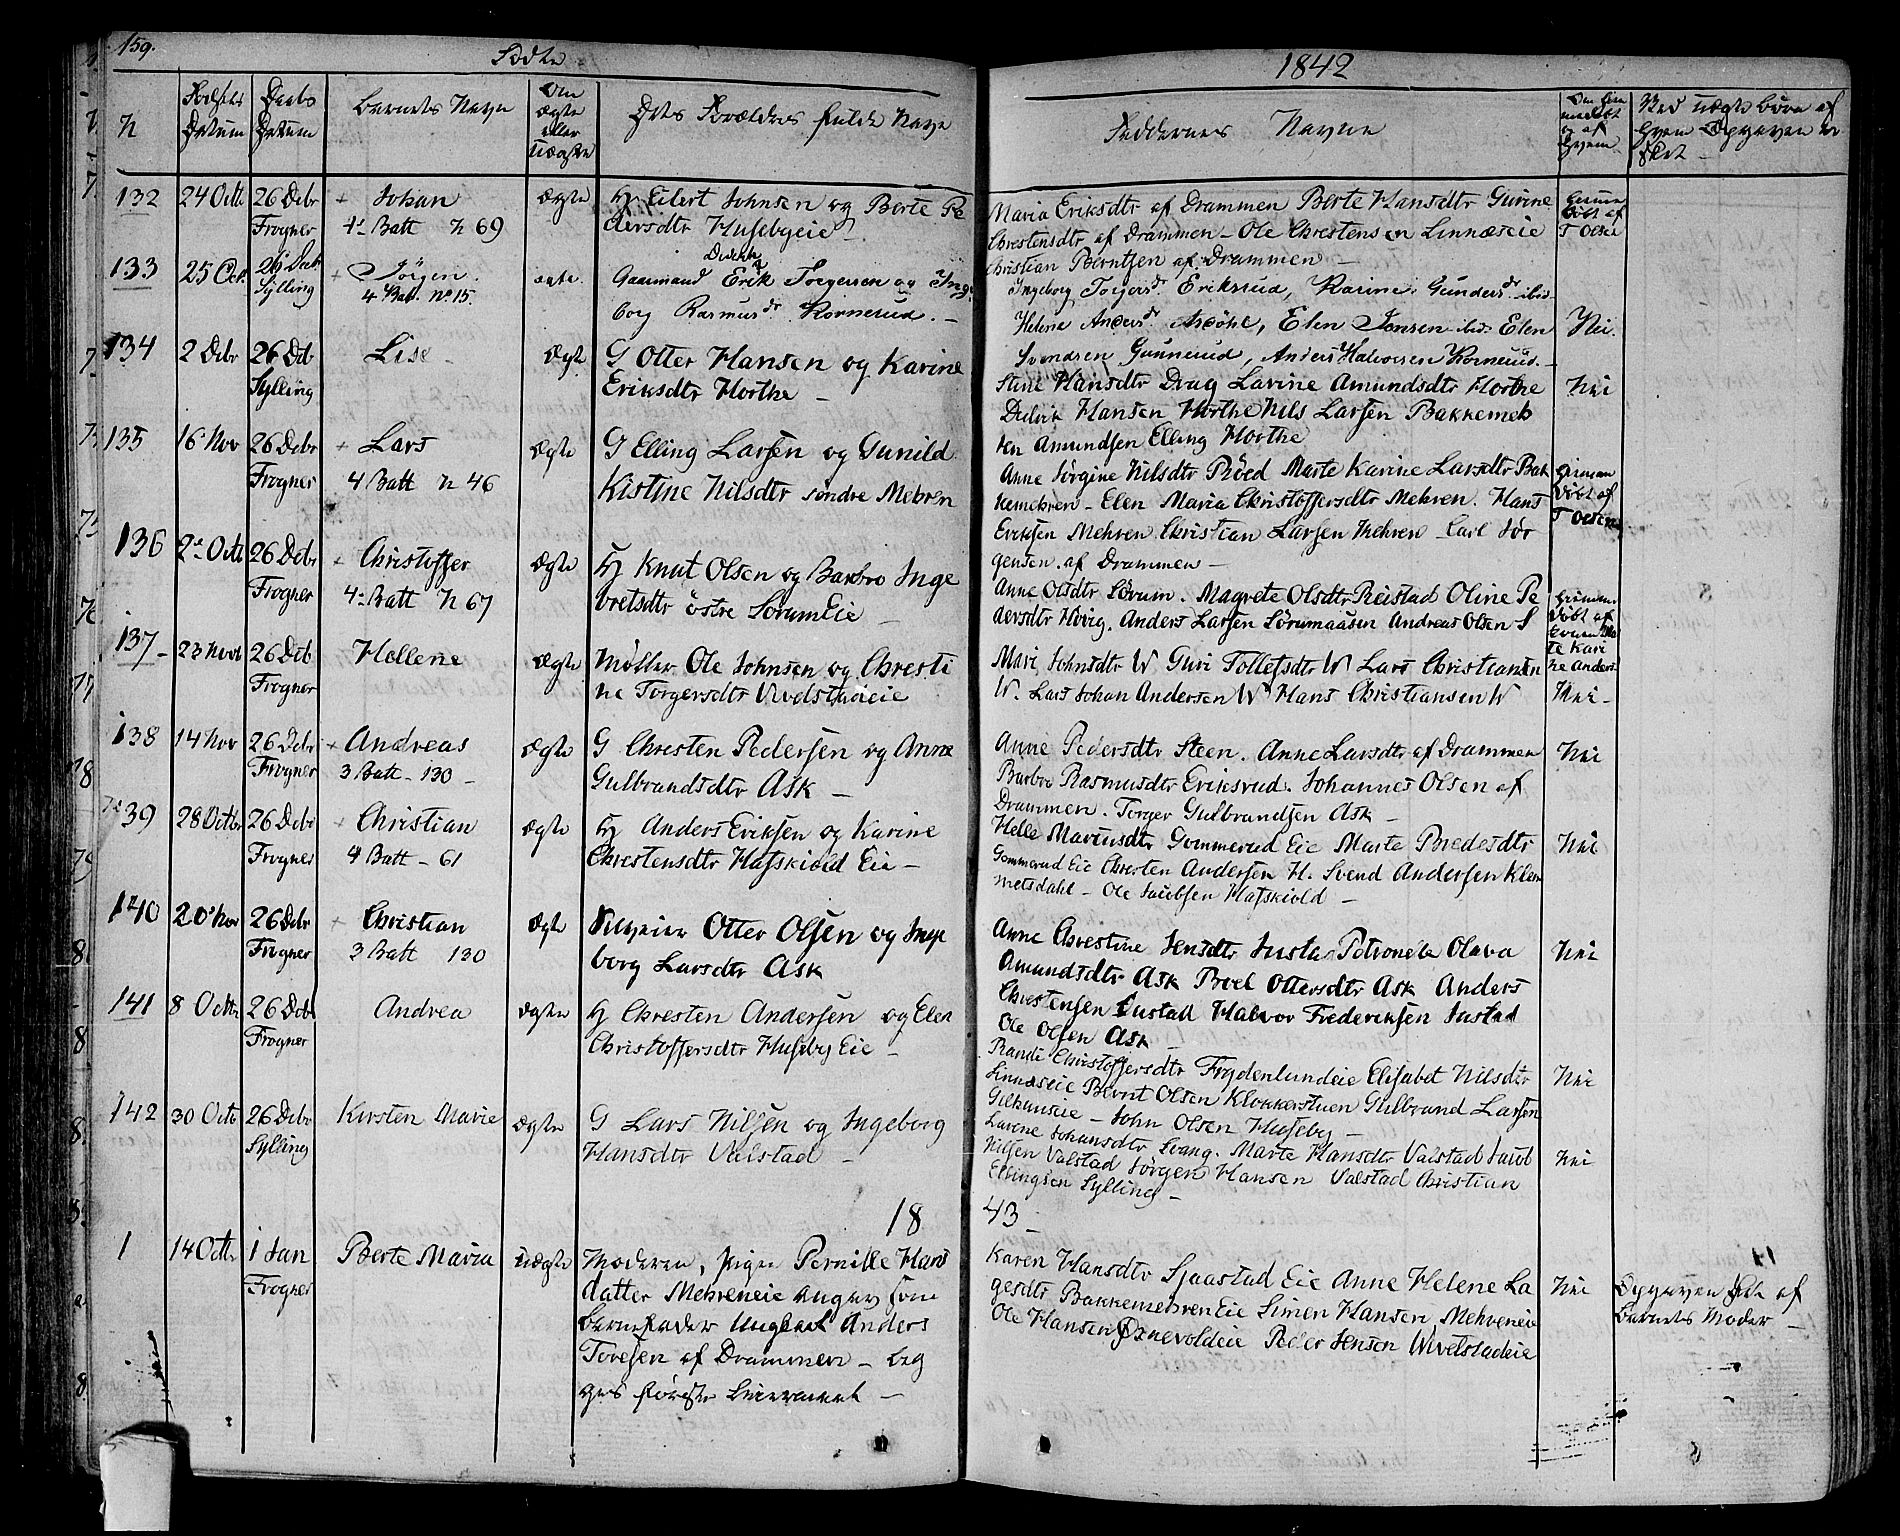 159.
Fødte
1842
N
Fødsels Datum
Daabs Datum
Barnets Navn
Om ægte eller uægte
Dets Forældres fulde Navn
Faddernes Navne
Om hjemmedøbt og af hvem
Ved uægte børn af hvem Opgaven er skeet
132 24 Octb 26 Debr Johan Ægte Hj Eilert Johnsen og Berte Pe
Frogner 4. Batt N 69 dersdtr Husebyeie
Maria Eriksdtr af Drammen Berte Hansdtr Gurine
Chrestensdtr af Drammen - Ole Chrestensen Linnæseie
Christian Berntsen af Drammen -
hjemme døbt af T Olsen
133 25 Oct. 26 Deb Jörgen ægte. Gaarmand Erik Torgersen og Inge
Sylling 4 Batt. No 15. borg Rasmusdr. Kornerud. -
Ingeborg Torgersdr. Eriksrud, Karine Gundersdr. ibid
Helena Andersdr. Aasöhe, Elen Jensen ibid. Elen
Svendsen Gunnerud, Anders Halvorsen Kornerud. -
Nei.
134 2 Debr 26 Deb Lise - Ægte G Otter Hansen og Karine
Sylling Eriksdtr Horthe -
Stine Hansdtr Drag Lavine Amundsdtr Horthe
Didrik Hansen Horthe Nils Larsen Bakkemeh
ren Amundsen Elling Horthe
Nei
135 16 Nov 26 Debr Lars Ægte G Elling Larsen og Gunild
Frogner 4 Batt N 46 Kistine Nilsdtr søndre Mehren
Anne Jørgine Nilsdtr Röed Marte Karine Larsdtr Bak
kemehren - Elen Maria Christoffersdtr Mehren. Hans
Eriksen Mehren Christian Larsen Mehren Carl Jør
gensen. af Drammen -
hjemme døbt af T Olsen
136 2. Octb 26 Debr Christoffer Ægte Hj Knut Olsen og Barbro Inge
Frogner 4. Batt N 67 bretsdtr östre Sörum Eie -
Anne Olsdtr Sörum. Magrete Olsdtr Reistad Oline Pe
dersdtr Hövig. Anders Larsen Sörumaasen Andreas Olsen S
137 - 23 Novb 26 Deb Hellene Ægte Møller Ole Johnsen og Chresti
Frogner ne Torgersdtr Wivelstadeie
Mari Johnsdtr W Guri Tollefsdtr W Lars Christiansen
W. Lars Johan Andersen W Hans Christiansen W
Nei -
138 14 Nov 26 Debr Andreas Ægte G Chresten Pedersen og Anne
Frogner 3 Batt - 130 - Gulbrandsdtr Ask -
Anne Pedersdtr Steen. Anne Larsdtr af Drammen
Barbro Rasmusdtr Eriksrud. Johannes Olsen af
Drammen. Torger Gulbrandsen Ask -
Nei
139 28 Octbr 26 Debr Christian Ægte Hj Anders Eriksen og Karine
Frogner 4 Batt - 61 Chrestensdtr Hafskiold Eie -
Helle Mariusdtr Gommerud Eie Marte Bredesdtr
Gommerud Eie Chresten Andersen H. Svend Andersen Klem
metsdahl - Ole Jacobsen Hafskiold -
Nei
140 20 Nov 26 Debr Christian Ægte Selveier Otter Olsen og Inge
Frogner 3 Batt 130 borg Larsdtr Ask
Anne Chrestine Jensdtr Justa Petronelle Olava
Amundsdtr Ask Boel Ottersdtr Ask Anders
Chrestensen Justad Halvor Frederiksen Justad
Ole Olsen Ask -
Nei
141 8 Octbr 26 Debr Andrea Ægte Hj Chresten Andersen og Elen
Frogner Christoffersdtr Huseby Eie -
Randi Christoffersdtr Frydenlundeie Elisabet Nilsdtr
Linnæseie Bernt Olsen Klokkerstuen Gulbrand Larsen
Gilhuuseie - John Olsen Huseby -
Nei
142 30 Octb 26 Debr Kirsten Marie Ægte G Lars Nilsen og Ingeborg
Sylling Hansdtr Valstad -
Lavine Johansdtr Svang. Marte Hansdtr Valstad Jacob
Nilsen Valstad Jörgen Hansen Valstad Christian
Ellingsen Sylling -
Nei
18 43 -
1 14 Octbr 1 Jan Berte Maria uægte Moderen, Pigen Pernille Hans
Frogner datter Mehreneie angav som
barnefader Ungkarl Anders
Toresen af Drammen - beg
ges første Leiermaal -
Karen Hansdtr Sjaastad Eie Anne Helene La
gesdtr Bakkemehren Eie Simen Hansen Mehreneie
Ole Hansen Ornevoldeie Peder Jensen Wivelstadeie
Nei
Opgaven skede af
Barnets Moder -